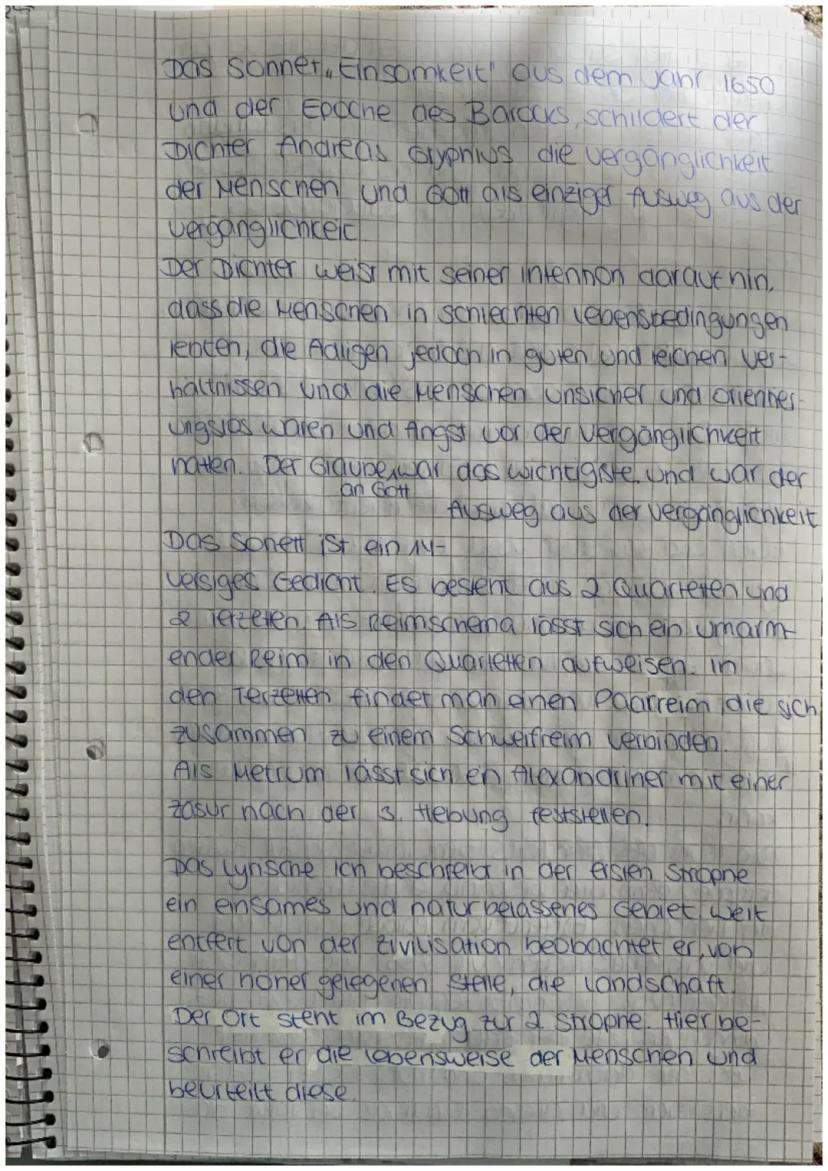 Das Sonnet „Einsamkeit" aus dem Jahr 1650
und der Epoche des Barocks, schildert der
Dichter Andreas Gryphius die Vergänglichkeit
der Menschen und Gott als einziger Ausweg aus der
Vergänglichkeit
Der Dichter weist mit seiner Intention darauf hin,
dass die Menschen in schlechten Lebensbedingungen
lebten, die Adligen jedoch in guten und reichen Ver-
hältnissen und die Menschen unsicher und orientier-
ungslos waren und Angst vor der Vergänglichkeit
hatten. Der Glaube war das wichtigste und war der
an Gott
Ausweg aus der Vergänglichkeit
Das Sonett ist ein 14-
versiges Gedicht. Es besteht aus 2 Quartetten und
2 Terzeten. Als Reimschema lässt sich ein umarm-
ender Reim in den Quartetten aufweisen. In
den Terzetten findet man einen Paarreim die sich
zusammen zu einem Schweifreim verbinden.
Als Metrum lässt sich en Alexandriner mit einer
Zäsur nach der 3. Hebung feststellen.
Das Lyrische Ich beschreibt in der ersten Strophe
ein einsames und naturbelassenes Gebiet weit
entfert von der Zivilisation beobachtet er, von
einer höher gelegenen Stelle, die Landschaft.
Der Ort steht im Bezug zur 2. Strophe. Hier be-
schreibt er die Lebensweise der Menschen und
beurteilt diese.